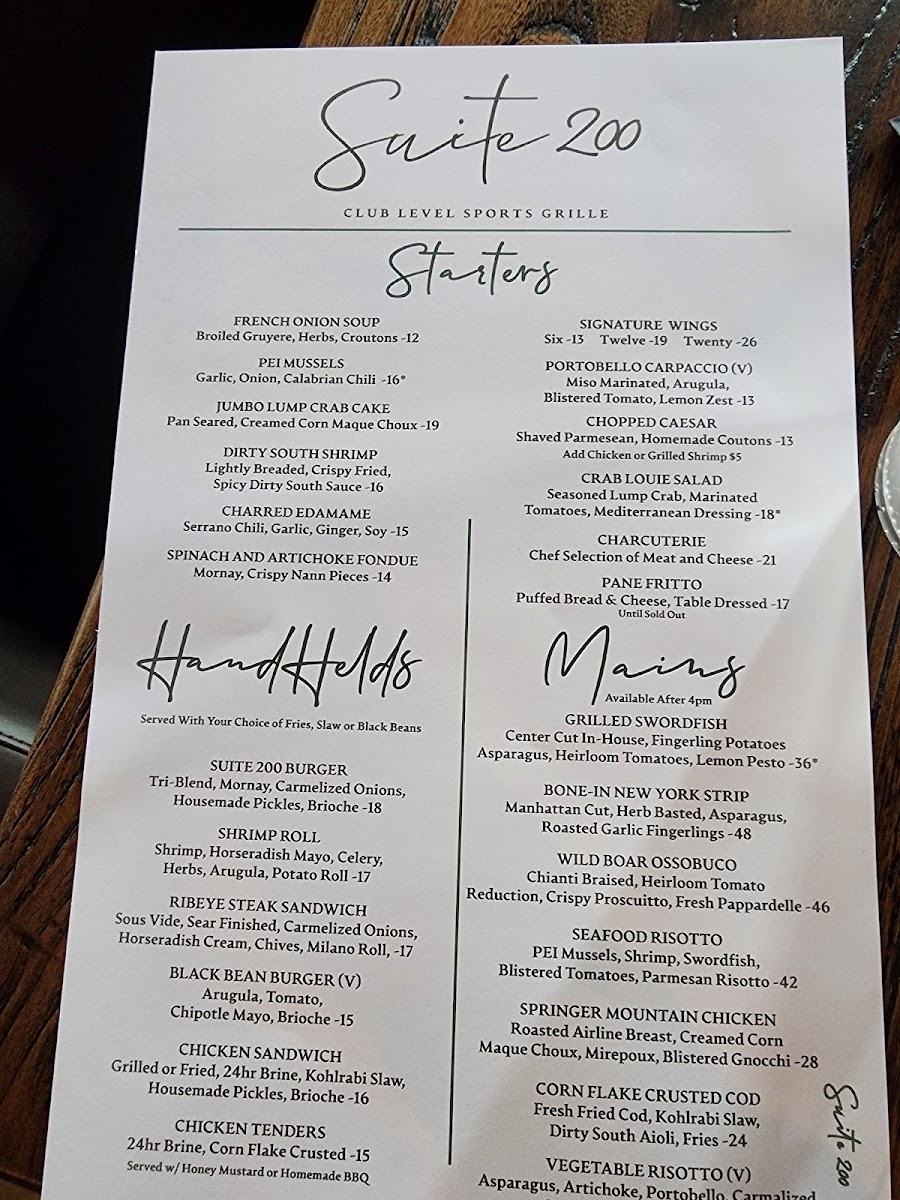 Suite 200
CLUB LEVEL SPORTS GRILLE
Starters
FRENCH ONION SOUP
Broiled Gruyere, Herbs, Croutons -12
PEI MUSSELS
Garlic, Onion, Calabrian Chili -16*
JUMBO LUMP CRAB CAKE
Pan Seared, Creamed Corn Maque Choux -19
DIRTY SOUTH SHRIMP
Lightly Breaded, Crispy Fried,
Spicy Dirty South Sauce -16
CHARRED EDAMAME
Serrano Chili, Garlic, Ginger, Soy -15
SPINACH AND ARTICHOKE FONDUE
Mornay, Crispy Nann Pieces -14
SIGNATURE WINGS
Six -13 Twelve -19 Twenty -26
PORTOBELLO CARPACCIO (V)
Miso Marinated, Arugula,
Blistered Tomato, Lemon Zest -13
CHOPPED CAESAR
Shaved Parmesean, Homemade Coutons -13
Add Chicken or Grilled Shrimp $5
CRAB LOUIE SALAD
Seasoned Lump Crab, Marinated
Tomatoes, Mediterranean Dressing -18*
CHARCUTERIE
Chef Selection of Meat and Cheese -21
PANE FRITTO
Puffed Bread & Cheese, Table Dressed -17
Until Sold Out
HandHelds
Served With Your Choice of Fries, Slaw or Black Beans
SUITE 200 BURGER
Tri-Blend, Mornay, Carmelized Onions,
Housemade Pickles, Brioche -18
SHRIMP ROLL
Shrimp, Horseradish Mayo, Celery,
Herbs, Arugula, Potato Roll -17
RIBEYE STEAK SANDWICH
Sous Vide, Sear Finished, Carmelized Onions,
Horseradish Cream, Chives, Milano Roll, -17
BLACK BEAN BURGER (V)
Arugula, Tomato,
Chipotle Mayo, Brioche -15
CHICKEN SANDWICH
Grilled or Fried, 24hr Brine, Kohlrabi Slaw,
Housemade Pickles, Brioche -16
CHICKEN TENDERS
24hr Brine, Corn Flake Crusted -15
Served w/ Honey Mustard or Homemade BBQ
Mains
Available After 4pm
GRILLED SWORDFISH
Center Cut In-House, Fingerling Potatoes
Asparagus, Heirloom Tomatoes, Lemon Pesto -36*
BONE-IN NEW YORK STRIP
Manhattan Cut, Herb Basted, Asparagus,
Roasted Garlic Fingerlings -48
WILD BOAR OSSOBUCO
Chianti Braised, Heirloom Tomato
Reduction, Crispy Proscuitto, Fresh Pappardelle -46
SEAFOOD RISOTTO
PEI Mussels, Shrimp, Swordfish,
Blistered Tomatoes, Parmesan Risotto -42
SPRINGER MOUNTAIN CHICKEN
Roasted Airline Breast, Creamed Corn
Maque Choux, Mirepoux, Blistered Gnocchi -28
CORN FLAKE CRUSTED COD
Fresh Fried Cod, Kohlrabi Slaw,
Dirty South Aioli, Fries -24
VEGETABLE RISOTTO (V)
Asparagus, Artichoke, Portobello, Carmalized
Suite 200